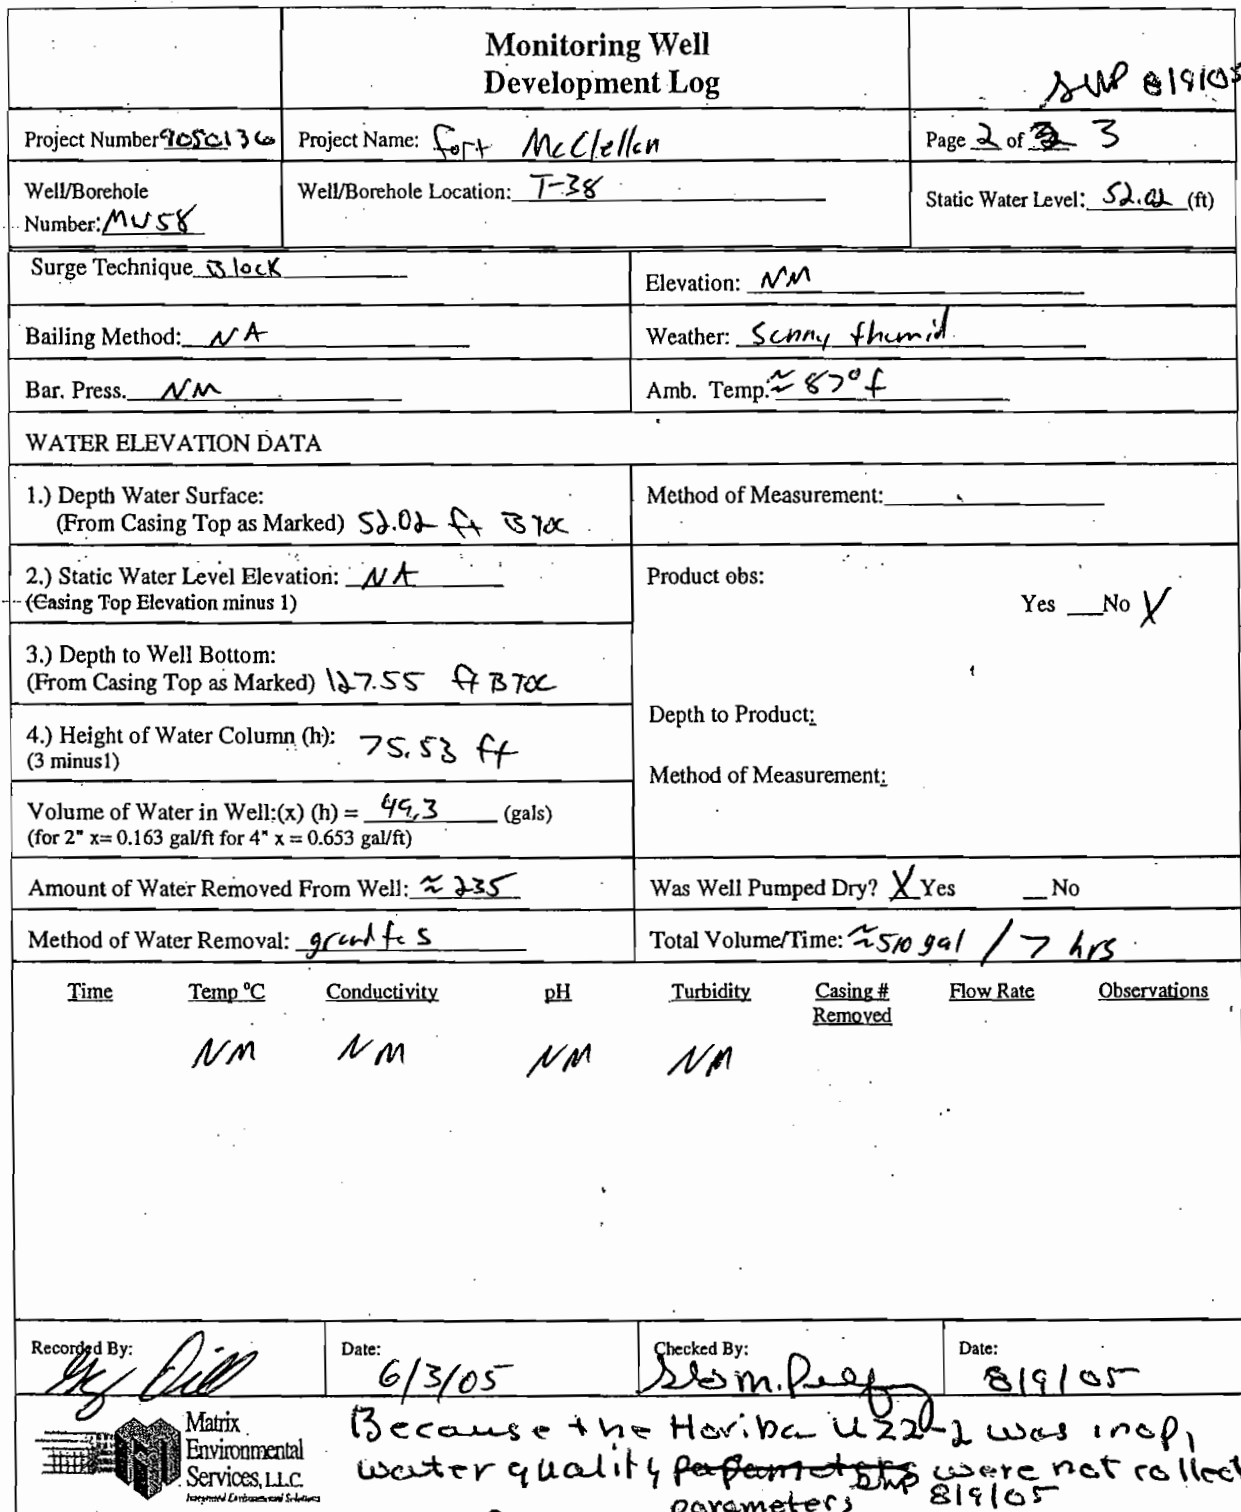 Monitoring Well
Development Log
SWP 8/9/05
Project Number 9050136
Project Name: Fort McClellan
Page 2 of 3
Well/Borehole
Number: MW58
Well/Borehole Location: T-38
Static Water Level: 52.02 (ft)
Surge Technique Block
Elevation: NM
Bailing Method: NA
Weather: Sunny + humid
Bar. Press. NM
Amb. Temp. ≈ 87° f
WATER ELEVATION DATA
1.) Depth Water Surface:
(From Casing Top as Marked) 52.02 ft BTOC
Method of Measurement:
2.) Static Water Level Elevation: NA
(Casing Top Elevation minus 1)
Product obs:
Yes __No X
3.) Depth to Well Bottom:
(From Casing Top as Marked) 127.55 ft BTOC
Depth to Product:
4.) Height of Water Column (h): 75.53 ft
(3 minus1)
Method of Measurement:
Volume of Water in Well:(x) (h) = 49.3 (gals)
(for 2" x= 0.163 gal/ft for 4" x = 0.653 gal/ft)
Amount of Water Removed From Well: ≈ 235
Was Well Pumped Dry? X Yes __No
Method of Water Removal: grundfos
Total Volume/Time: ≈510 gal / 7 hrs
Time Temp °C Conductivity pH Turbidity Casing # Flow Rate Observations
Removed
NM NM NM NM
Recorded By:
Date: 6/3/05
Checked By:
Date: 8/9/05
Matrix
Environmental
Services, L.L.C.
Integrated Environmental Solutions
Because the Horiba U22-2 was inop,
water quality were not collect
parameters SWP 8/9/05